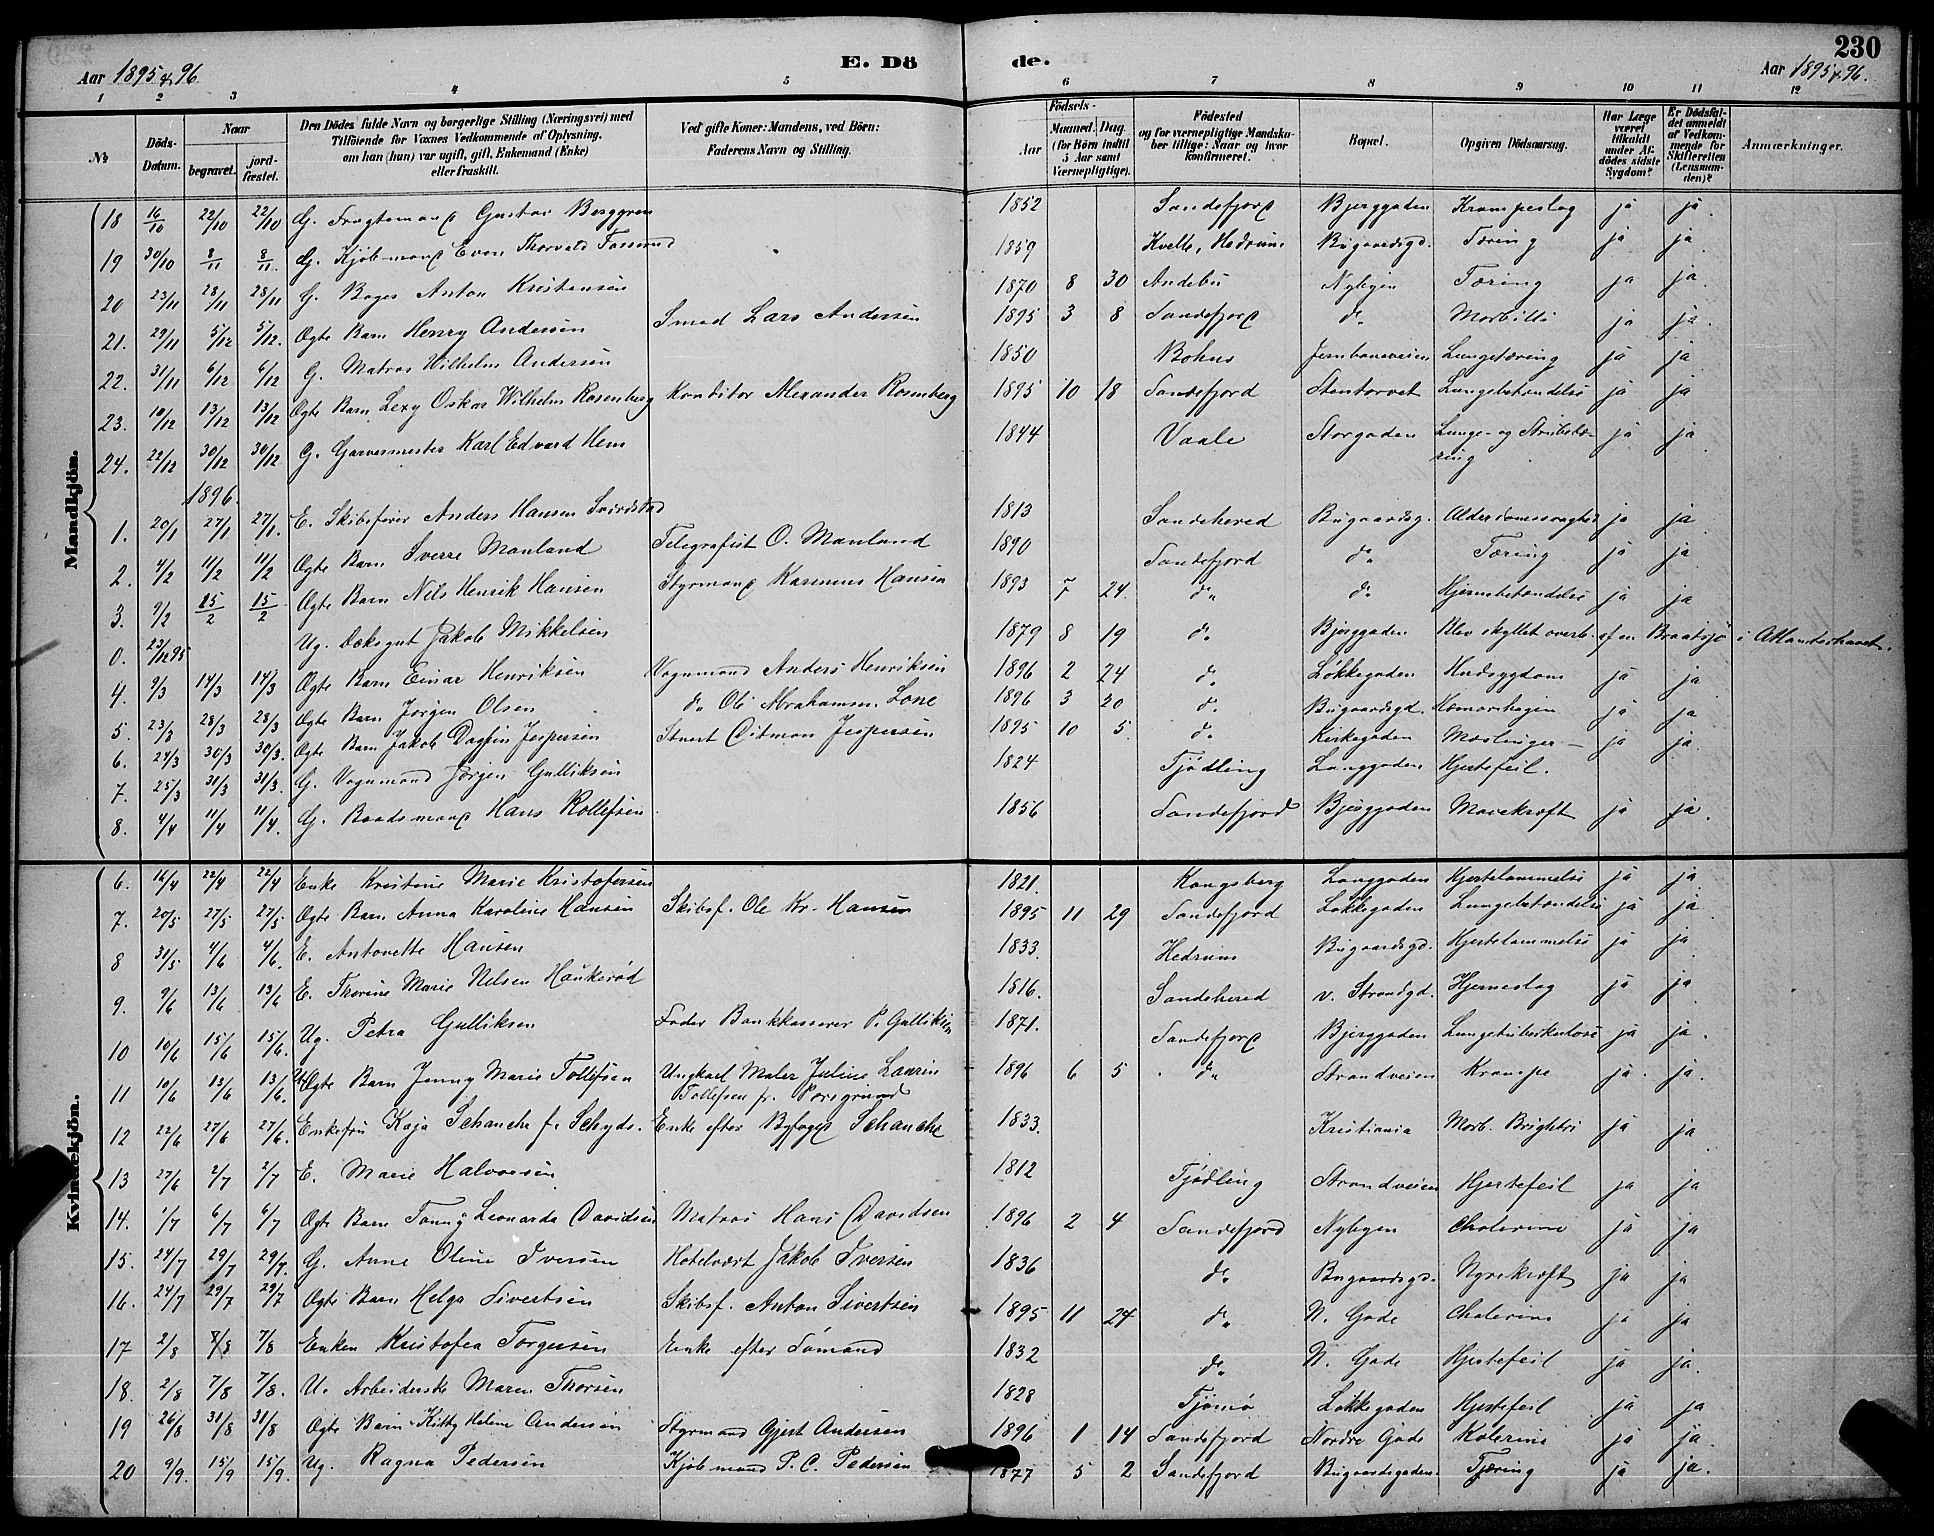 230
Aar 1895 & 96. E. Dö de. Aar 1895 & 96.
1 2 3 4 5 6 7 8 9 10 11 12
No Döds-Datum. Naar begravet. jordfæstet. Den Dödes fulde Navn og borgerlige Stilling (Næringsvei) med Tilföiende for Voxnes Vedkommende af Oplysning, om han (hun) var ugift, gift, Enkemand (Enke) eller fraskilt. Ved gifte Koner: Mandens, ved Börn: Faderens Navn og Stilling. Födsels- Aar Maaned. Dag. (for Börn indtil 5 Aar samt Værnepligtige). Födested og for værnepligtige Mandskaber tillige: Naar og hvor konfirmeret. Bopæl. Opgiven Dödsaarsag. Har Læge været tilkaldt under Afdödes sidste Sygdom? Er Dödsfaldet anmeldt af Vedkommende for Skifteretten (Lensmanden)? Anmærkninger.
Mandkjön.
18 16/10 22/10 22/10 G. Fragtemand Gustav Berggren 1852 Sandefjord Bjerggaden Krampeslag ja ja.
19 30/10 8/11 8/11 G. Kjöbmand Even Thorvald 1859 Kvelle, Hedrum Bugaardsgd. Tæring ja ja
20 23/11 28/11 28/11 G. Bager Anton Kristensen 1870 8 30 Andebu Nybyen Tæring ja ja
21. 29/11 5/12 5/12. Ægte Barn Henry Andersen Smed Lars Andersen 1895 3 8 Sandefjord do Morbilli ja ja.
22. 31/11 6/12 6/12 G. Matros Wilhelm Andersen 1850 Bohus Jernbaneveien Lungetæring ja ja
23. 10/12 13/12 13/12 Ægte Barn Lexy Oskar Wilhelm Rosenberg Konditor Alexander Rosenberg 1895 10 18 Sandefjord Stentorvet Lungebetændelse ja ja
24. 22/12 30/12 30/12 G. Garvermester Karl Edvard Hem 1844 Vaale Storgaden Lunge- og Strubetæring ja ja
1896.
1. 20/1 27/1 27/1. E. Skibsfører Anders Hansen 1813 Sandeherred Bugaardsg. Alderdomssvaghed ja ja
2. 4/2 11/2 11/2 Ægte Barn Sverre Manland Telegrafist O. Manland 1890 Sandefjord do Tæring ja ja.
3. 9/2 15/2 15/2 Ægte Barn Nils Henrik Hansen Styrmand Karenius Hansen 1893 7 24. do do Hjernebetændelse ja ja
0. 23/12 95 Ug. Dæksgut Jakob Mikkelsen 1879 8 19 do Bjerggaden Blev skyllet overb. af en Braatsjø i Atlanterhavet.
4. 9/3 14/3 14/3 Ægte Barn Einar Henriksen Vognmand Anders Henriksen 1896 2 24 do Løkkegaden Hudsygdom ja ja
5. 23/3 28/3 28/3 Ægte Barn Jørgen Olsen do Ole Abrahamsen Lone 1896 3 20 do Bugaardsgd. ja ja
6. 24/3 30/3 30/3. Ægte Barn Jakob Dagfin Jespersen Stuert Ditman Jespersen 1895 10 5. do Kirkegaden Mæslinger ja ja.
7. 25/3 31/3 31/3. G. Vognmand Jørgen Gulliksen 1824 Tjødling Langgaden Hjertefeil.
8. 4/4 11/4 11/4. G. Baadsmand Hans Rollefsen 1856 Sandefjord Bjerggaden Mavekræft ja ja.
Kvindekjön.
6. 16/4 22/4 22/4 Enke Kristine Marie Kristofersen 1821. Kongsberg Langgaden Hjertelammelse ja ja
7. 20/5 27/5 27/5 Ægte Barn Anna Karoline Hansen Skibsf. Ole Kr. Hansen 1895 11 29 Sandefjord Løkkegaden Lungebetændelse ja ja
8 31/5 4/6 4/6. E. Antonette Hansen 1833. Hedrum Bugaardsgd. Hjertelammelse ja ja
9. 9/6 13/6 13/6 E. Thorine Marie Nilsen Haukerød 1816. Sandeherred v. Strandgd. Hjerneslag ja ja
10 10/6 15/6 15/6. Ug. Petra Gulliksen Fader Bankkasserer P. Gulliksen 1871. Sandefjord Bjerggaden Lungetuberkulose ja ja.
11 10/6 13/6 13/6. UÆgte Barn Jenny Marie Tollefsen Ungkarl Maler Julius Laurin Tollefsen fr. Porsgrund 1896 6 5 do Strandveien Krampe ja ja.
12 22/6 27/6 27/6. Enkefru Kaja Schanche f. Schyds. Enke efter Byfoged Schanche 1833. Kristiania Morb. Brightii ja ja
13 27/6 2/7 2/7 E. Marie Halvorsen 1812 Tjødling Strandveien Hjertefeil ja ja
14. 1/7 6/7 6/7 Ægte Barn Fanny Leonarda Davidsen Matros Hans Davidsen 1896 2 4 Sandefjord Nybyen Cholerine ja ja
15. 24/7 29/7 29/7. G. Anne Oline Iversen Hotelvært Jakob Iversen 1836 do Bugaardsgd. Nyrekræft ja ja
16. 24/7 29/7 29/7 Ægte Barn Helga Sivertsen Skibsf. Anton Sivertsen 1895 11 24 do N. Gade Cholerine ja ja
17 2/8 7/8 7/8 Enken Kristofea Torgersen Enke efter Sømand 1832 do N. Gade Hjertefeil ja ja.
18. 2/8 7/8 7/8. U. Arbeiderske Maren Thorsen 1828 Tjømø Løkkegaden Hjertefeil ja ja
19 26/8 31/8 31/8 Ægte Barn Kitty Helene Andersen Styrmand Gjert Andersen 1896 1 14 Sandefjord Nordre Gade Kolerine ja ja.
20 9/9. 15/9 15/9. Ug. Ragna Pedersen Kjöbmand P. C. Pedersen 1877 5 2 Sandefjord Bugaardsgaden. Tæring ja ja.